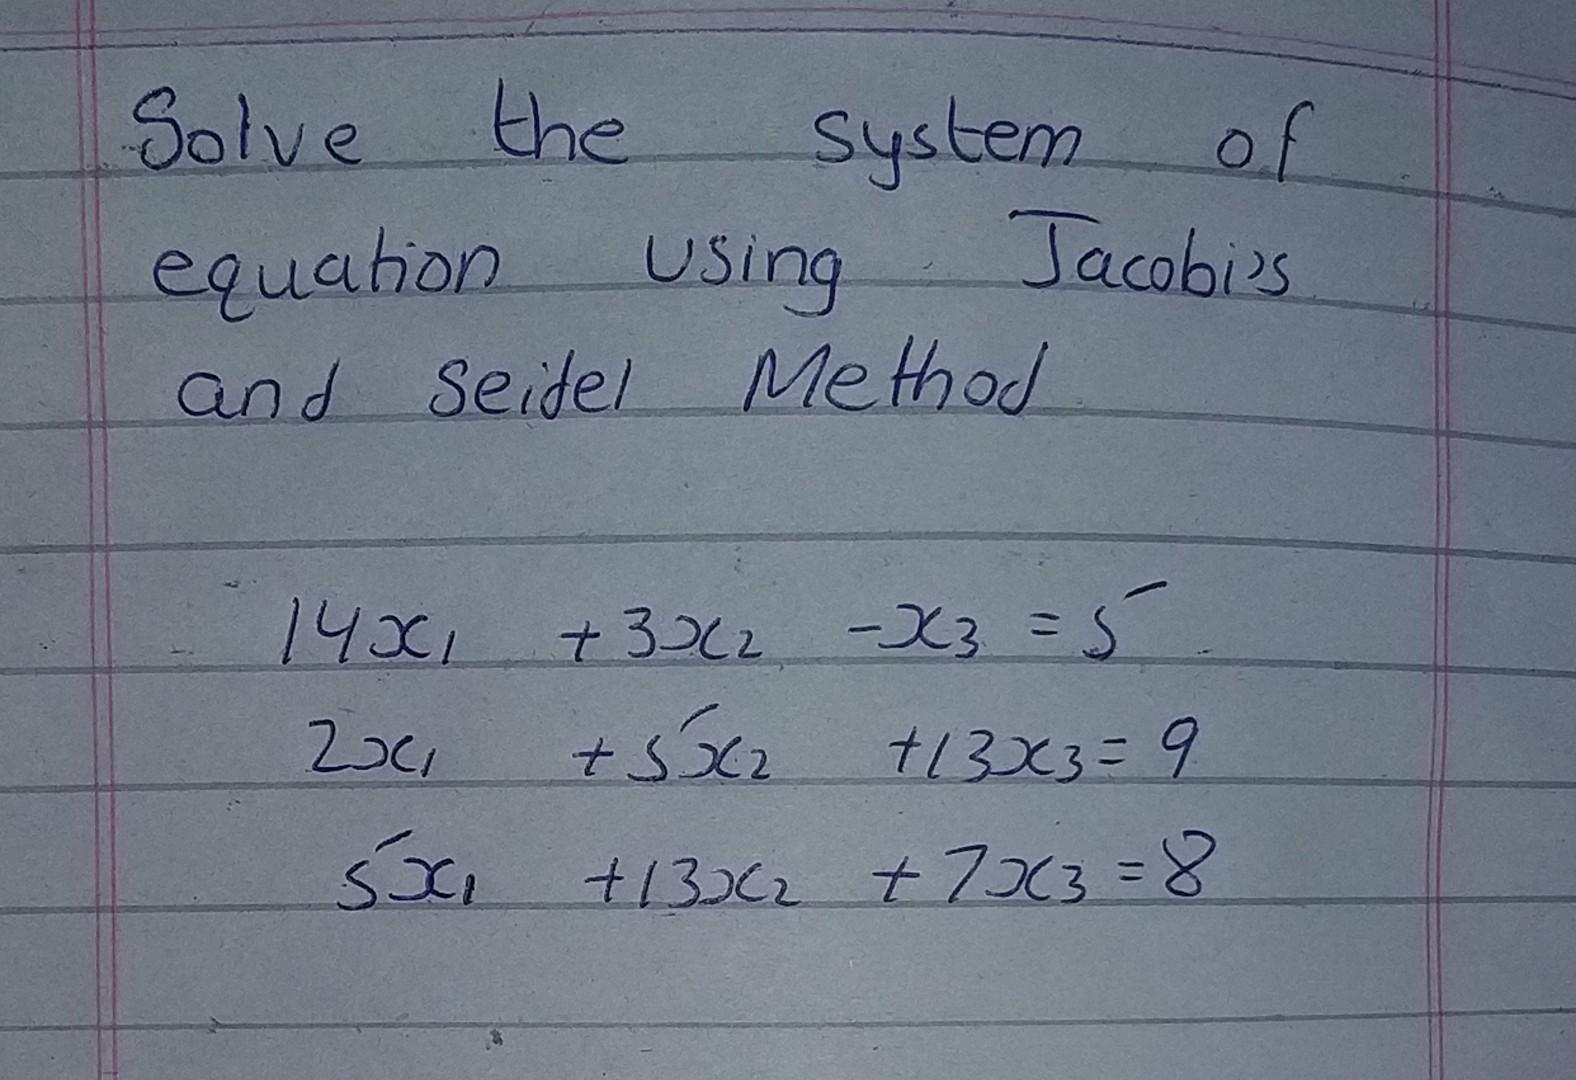 Solve the system of
equation using Jacobi's
and Seidel Method
14x₁ +3x₂ -x₃ = 5
2x₁ +5x₂ +13x₃ = 9
5x₁ +13x₂ +7x₃ = 8